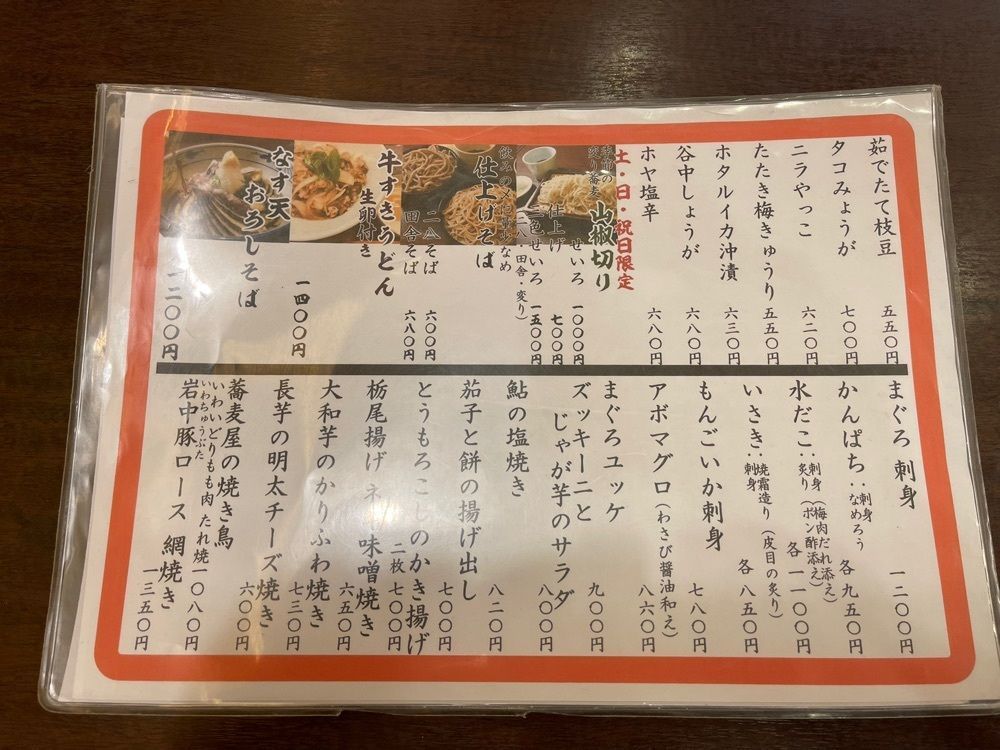 茹でたて枝豆 五五〇円
タコみょうが 七〇〇円
ニラやっこ 六二〇円
たたき梅きゅうり 五五〇円
ホタルイカ沖漬 六三〇円
谷中しょうが 六八〇円
ホヤ塩辛 六八〇円
土・日・祝日限定
変り蕎麦 山椒切り
せいろ 一〇〇〇円
仕上げ 七〇〇円
三色せいろ 一五〇〇円
(二八・田舎・変り)
仕上げそば
二八そば 六〇〇円
田舎そば 六八〇円
牛すきうどん
生卵付き
一四〇〇円
なす天
おろしそば
一二〇〇円
まぐろ刺身 一二〇〇円
かんぱち:刺身
なめろう 各九五〇円
水だこ:刺身(梅肉だれ添え)
炙り(ポン酢添え) 各一一〇〇円
いさき:焼霜造り(皮目の炙り)
刺身 各八五〇円
もんごいか刺身 七八〇円
アボマグロ(わさび醤油和え) 八六〇円
まぐろユッケ 九〇〇円
ズッキーニと
じゃが芋のサラダ 八〇〇円
鮎の塩焼き 八二〇円
茄子と餅の揚げ出し 七〇〇円
とうもろこしのかき揚げ
二枚 七〇〇円
栃尾揚げネギ味噌焼き 六五〇円
大和芋のかりふわ焼き 七三〇円
長芋の明太チーズ焼き 六〇〇円
蕎麦屋の焼き鳥
いわいどりもも肉 たれ焼 一〇八〇円
いわちゅうぶた
岩中豚ロース 網焼き 一三五〇円